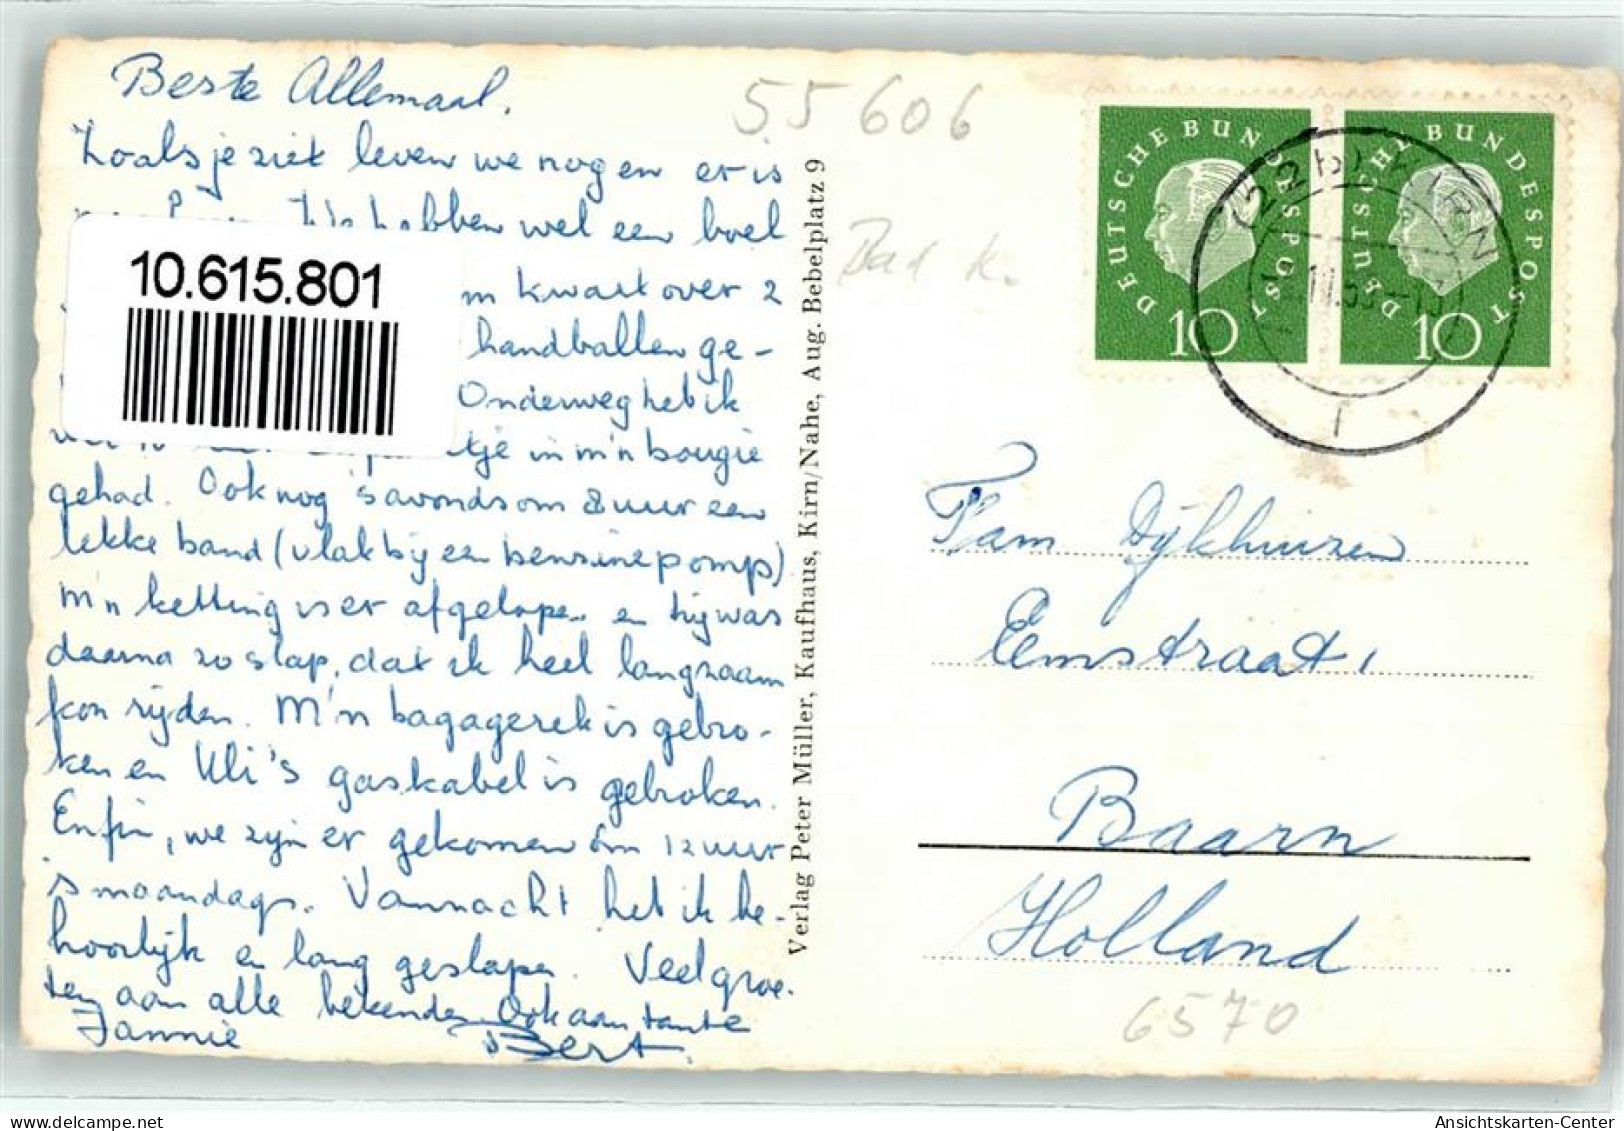 Beste Allemaal.
Zoals je ziet leven we nog en er is
hebben wel een boel
kwart over 2
handballen ge-
Onderweg heb ik
in m'n bougie
gehad. Ook nog 's avonds om 8 uur een
lekke band (vlak bij een benzinepomp)
M'n ketting is er afgelopen en hij was
daarna zo slap, dat ik heel langzaam
kon rijden. M'n bagagerek is gebro-
ken en Uli's gaskabel is gebroken.
Enfin, we zijn er gekomen om 12 uur
's maandags. Vannacht heb ik be-
hoorlijk en lang geslapen. Veel groe-
ten aan alle bekenden. Ook aan tante
Jannie Bert.
10.615.801
Verlag Peter Müller, Kaufhaus, Kirn/Nahe, Aug. Bebelplatz 9
55606
Bad K.
DEUTSCHE BUNDESPOST
10
DEUTSCHE BUNDESPOST
10
(22b) KIRN
Fam Dijkhuizen
Eemstraat 1
Baarn
Holland
6570
Ansichtskarten-Center